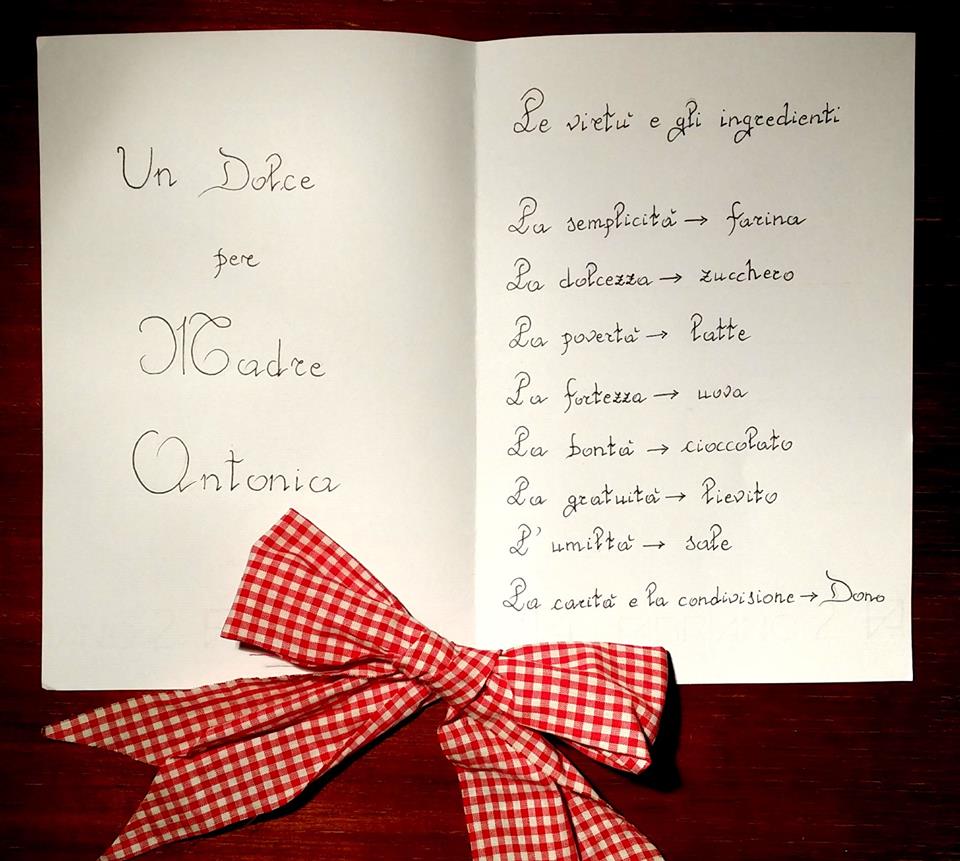 Un Dolce
per
Madre
Antonia
Le virtù e gli ingredienti
La semplicità → farina
La dolcezza → zucchero
La povertà → latte
La fortezza → uova
La bontà → cioccolato
La gratuità → lievito
L' umiltà → sale
La carità e la condivisione → Dono